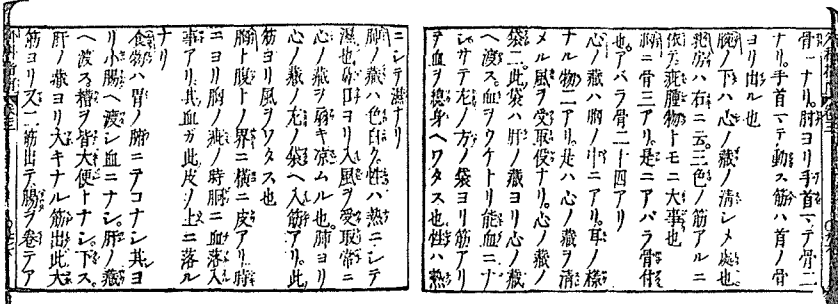 骨一ナリ。肘ヨリ手首マテ骨二
ナリ。手首マテ動ス筋ハ首ノ骨
ヨリ出ル也
腕ノ下ハ心ノ蔵ノ清シメ処也
乳房ハ右ニ云。二色ノ筋アルニ
依テ疵腫物トモニ大事也
胸ニ骨三アリ。是ニアバラ骨付
也。アバラ骨二十四アリ
心ノ蔵ハ胸ノ中ニアリ。耳ノ様
ナル物二アリ。是ハ心ノ蔵ヲ清
メル風ヲ受取役ナリ。心ノ蔵ノ
袋二。此袋ハ肝ノ蔵ヨリ心ノ蔵
ヘ渡ス。血ヲウケトリ能血ニナ
シサテ左ノ方ノ袋ヨリ筋アリ
テ血ヲ惣身ヘワタス也性ハ熱
ニシテ湿ナリ
肺ノ蔵ハ色白ク。性ハ熱ニシテ
湿也鼻口ヨリ入風ヲ受取常ニ
心ノ蔵ヲ扇キ凉ムル也。肺ヨリ
心ノ蔵ノ左ノ袋ヘ入筋アリ。此
筋ヨリ風ヲワタス也
胸ト腹トノ界ニ横ニ皮アリ。時
ニヨリ胸ノ疵ノ時胴ニ血落入
事アリ。其血ガ此皮ノ上ニ落ル
ナリ
食物ハ胃ノ腑ニテコナシ其ヨ
リ小腸ヘ渡シ血ニナシ。肝ノ蔵
ヘ渡ス糟ヲ皆大便トナシ。下ス。
肝ノ蔵ヨリ大キナル筋出此大
筋ヨリ又一筋出テ腸ヲ巻テア